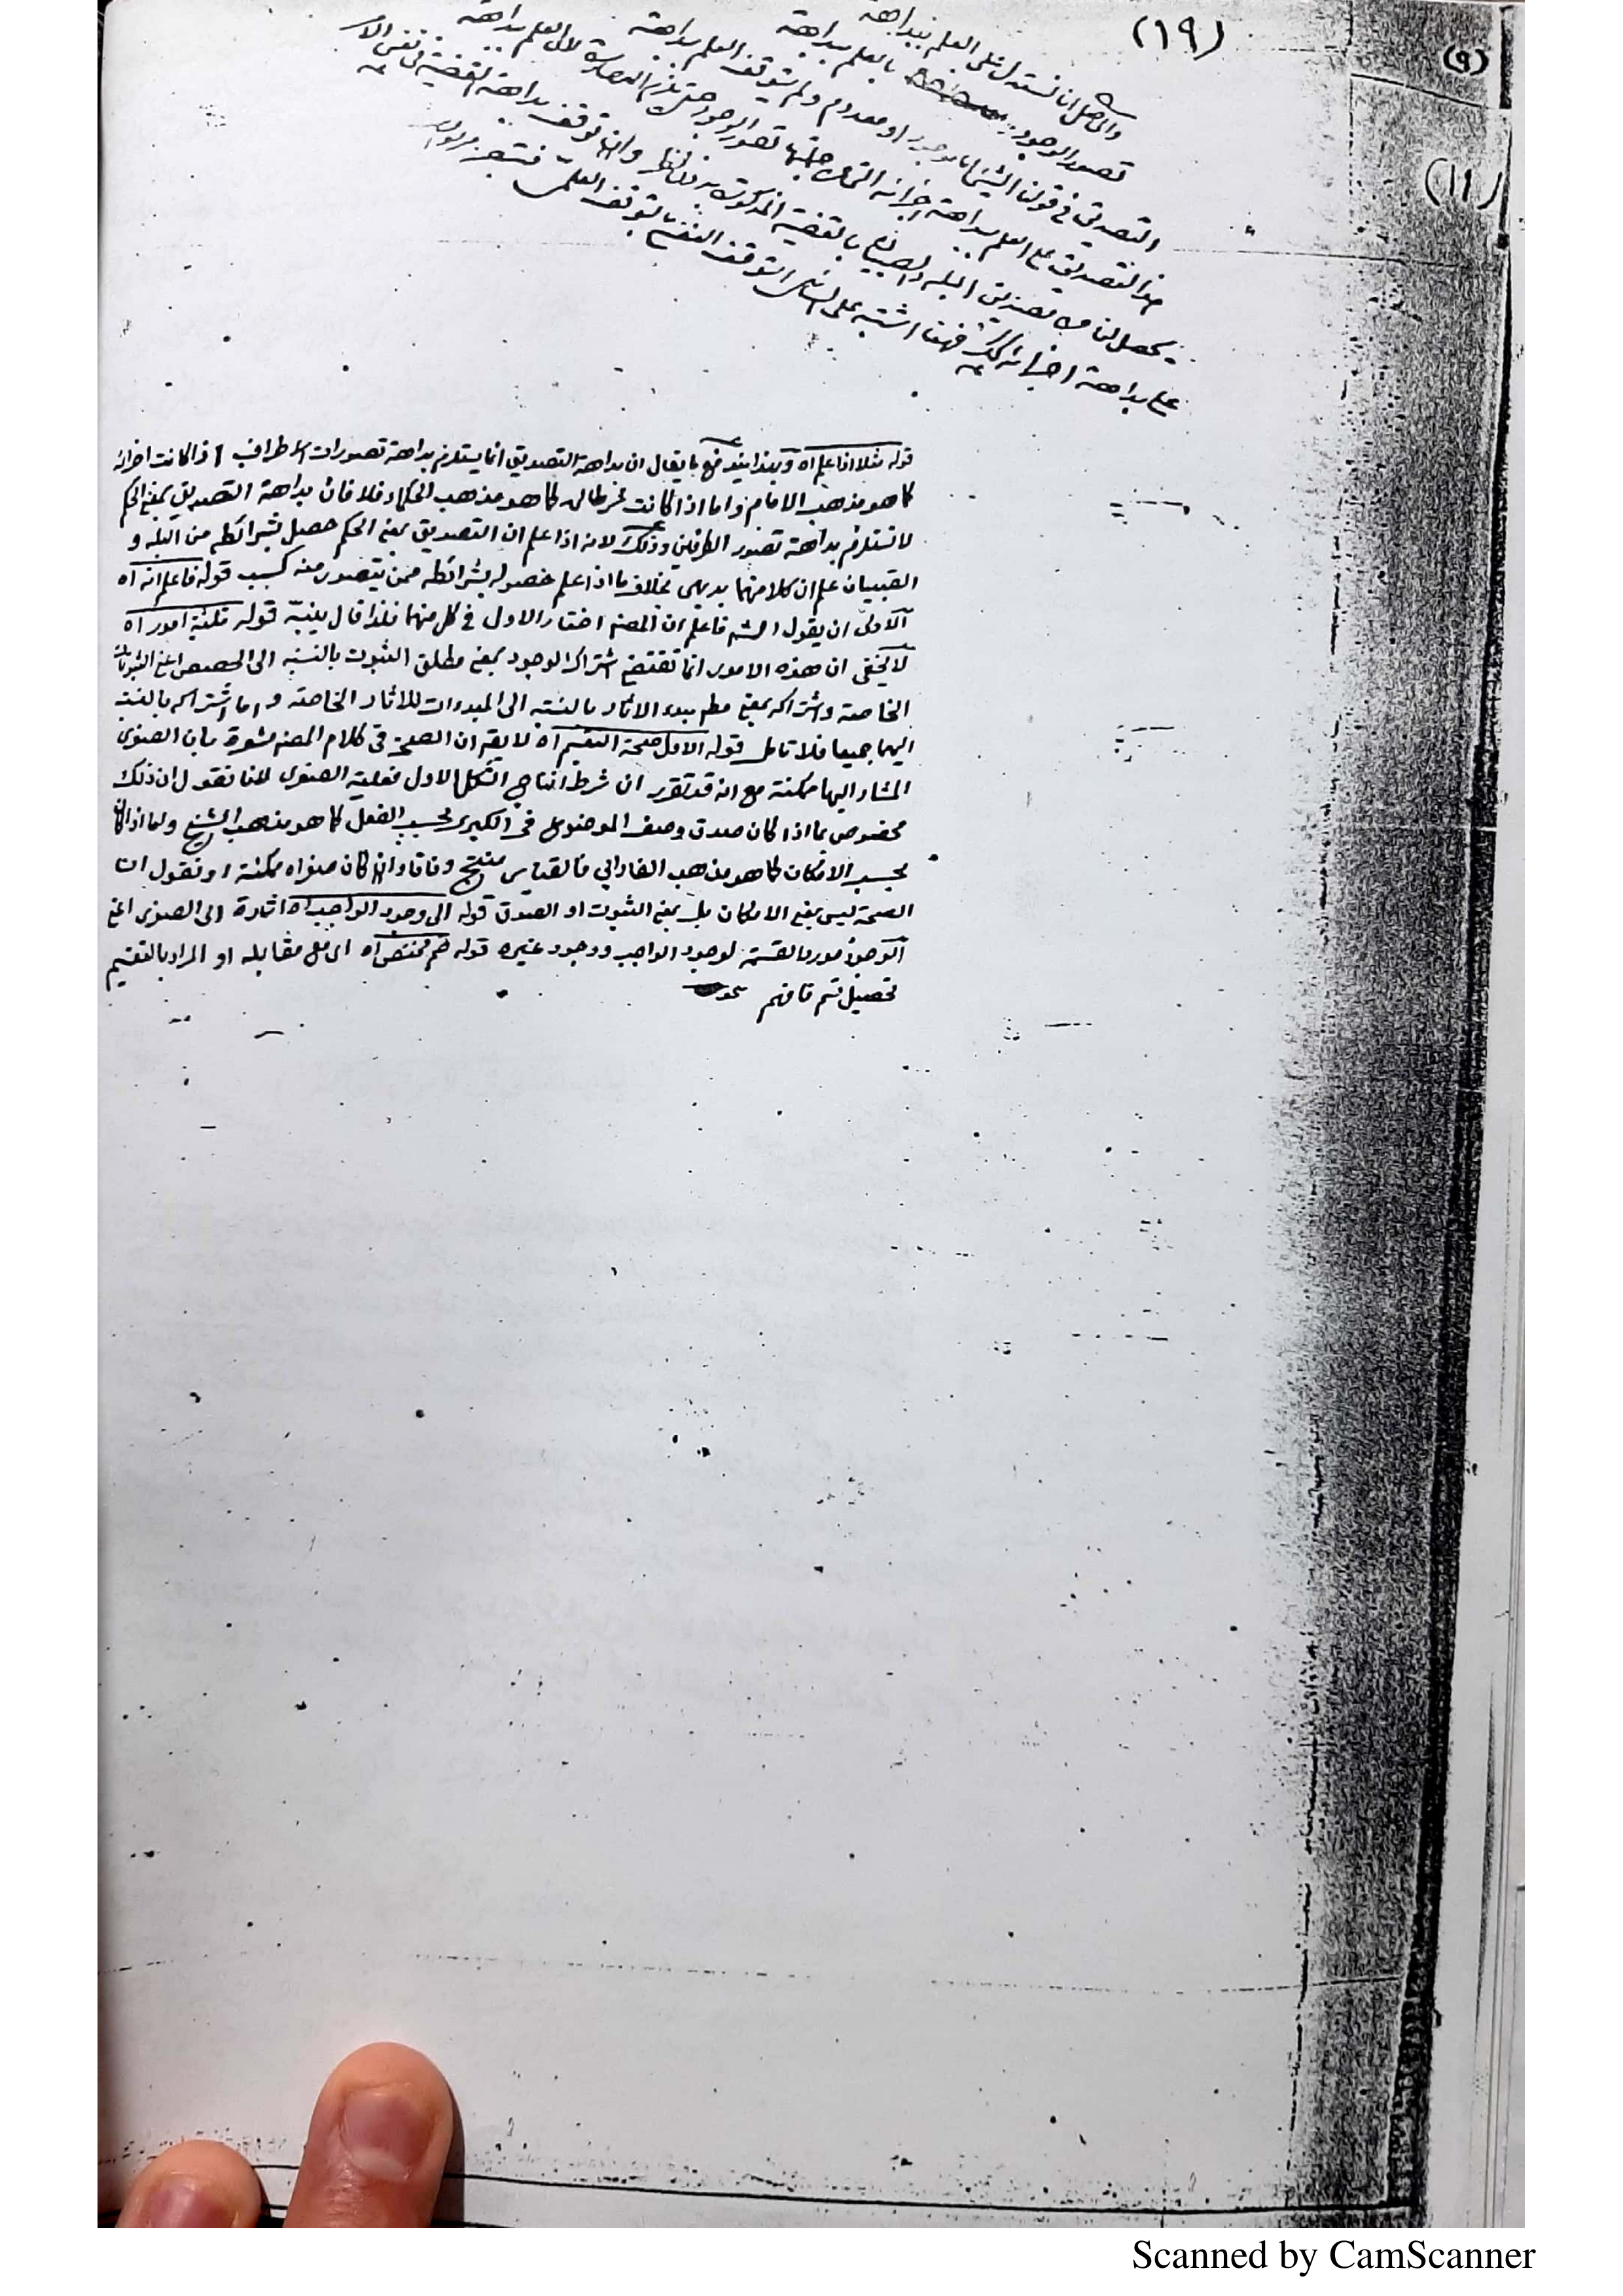 (١٩)
(٩)
(١١)
والحاصل ان نستدل على العلم ببداهة
تصور الوجود بالعلم ببداهة
التصديق في قولنا الشئ اما موجود او معدوم ولم يتوقف العلم ببداهة
هذا التصديق على العلم ببداهة اجزائه التي من جملتها تصور الوجود حتى يلزم المصادرة لان العلم ببداهة
يحصل لنا من تصديق البله والصبيان بالقضية المذكورة بلا نظر وان توقف بداهة القضية في نفس الامر
على بداهة اجزائه كذلك فههنا اشتبه على السائل التوقف النفسي بالتوقف العلمي
قوله مثلا اذا علم اه وبهذا يندفع ما يقال ان بداهة التصديق انما يستلزم بداهة تصورات الاطراف اذا كانت اجزائه
كما هو مذهب الامام واما اذا كانت شرطا له كما هو مذهب الحكماء فلا فان بداهة التصديق بمعنى الحكم
لا تستلزم بداهة تصور الطرفين وذلك لانه اذا علم ان التصديق بمعنى الحكم حصل بشرائطه من البله و
الصبيان علم ان كلا منهما بديهي بخلاف ما اذا علم حصوله بشرائطه ممن يتصور منه كسب قوله فاعلم انه اه
الاولى ان يقول الشه فاعلم ان المصنف اختار الاول في كل منهما فلذا قال ينبه قوله ثلثة امور اه
لا يخفى ان هذه الامور انما تقتضي اشتراك الوجود بمعنى مطلق الثبوت بالنسبة الى الحصص اعني الثبوتات
الخاصة واشتراكه بمعنى مطلق مبدء الاثار بالنسبة الى المبدءات للاثار الخاصة واما اشتراكه بالنسبة
اليهما جميعا فلا تامل قوله الاول صحة التقسيم اه لا يقال ان الصحة في كلام المصنف مشعرة بان الصغرى
المشار اليها ممكنة مع انه قد تقرر ان شرط انتاج الشكل الاول فعلية الصغرى لانا نقول ان ذلك
مخصوص بما اذا كان صدق وصف الموضوع في الكبرى بحسب الفعل كما هو مذهب الشيخ واما اذا كان
بحسب الامكان كما هو مذهب الفارابي فالقياس منتج وفاقا وان كان صغراه ممكنة او نقول ان
الصحة ليس بمعنى الامكان بل بمعنى الثبوت او الصدق قوله الى وجود الواجب اه اشارة الى الصغرى اعني
الوجود مورد القسمة لوجود الواجب ووجود غيره قوله ضم مختص اه اي مع مقابله او المراد بالتقسيم
تحصيل قسم فافهم
Scanned by CamScanner